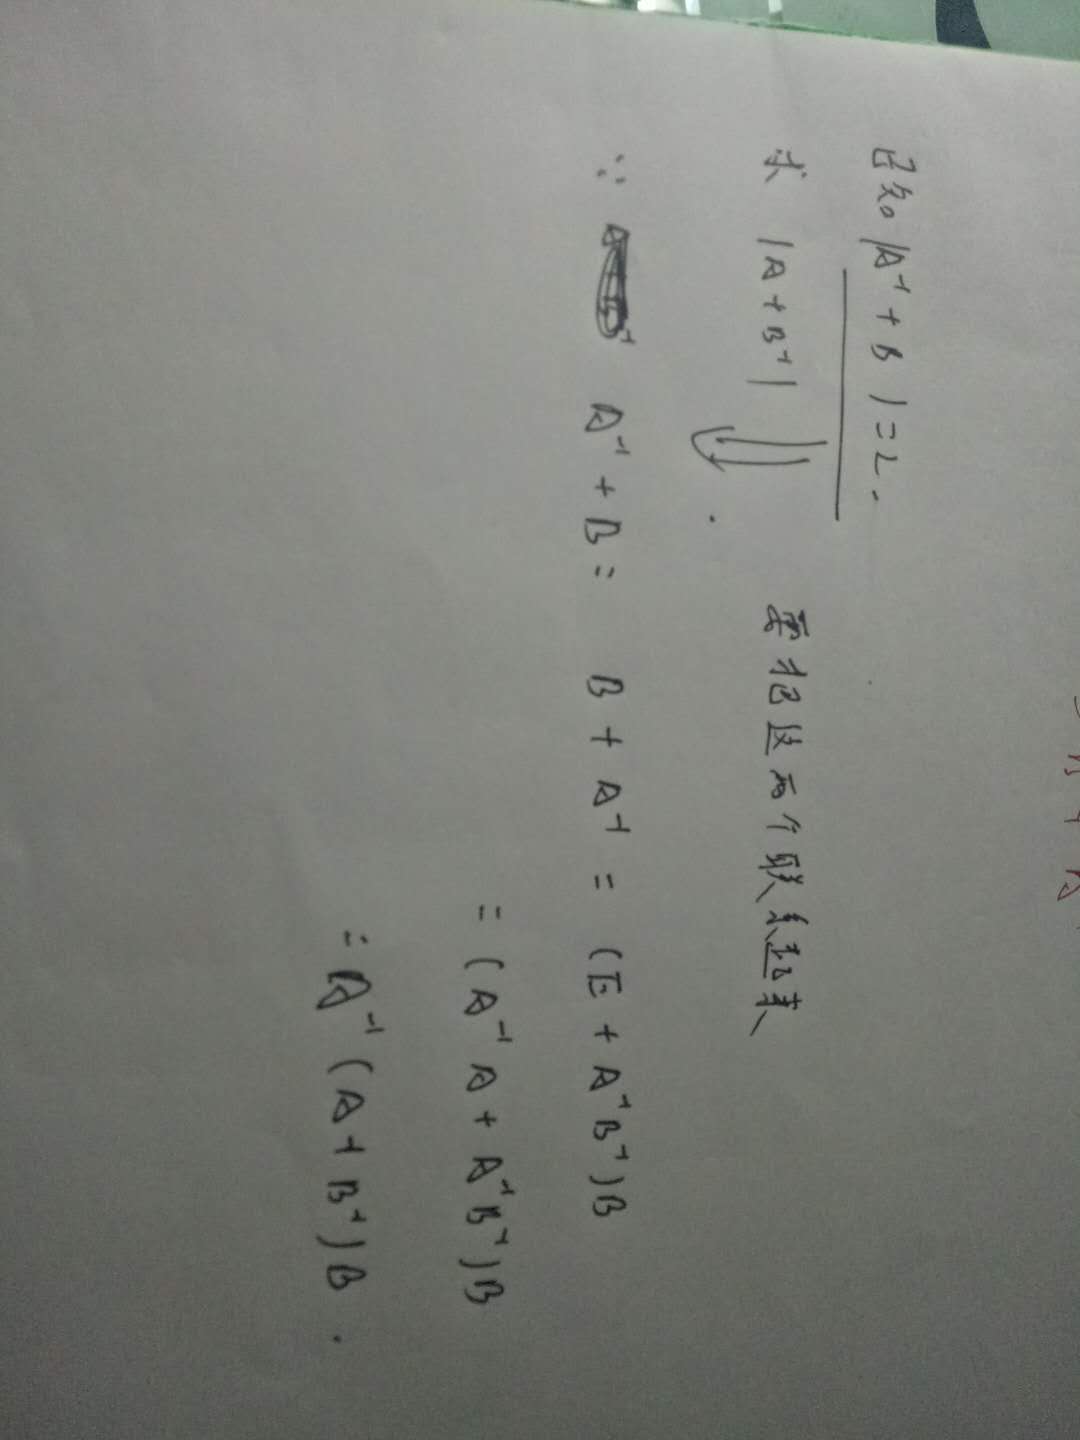 已知 |A⁻¹+B|=2.
求 |A+B⁻¹|
要把这两个联系起来
∵ A⁻¹+B= B+A⁻¹ = (E+A⁻¹B⁻¹)B
= (A⁻¹A+A⁻¹B⁻¹)B
= A⁻¹(A+B⁻¹)B.